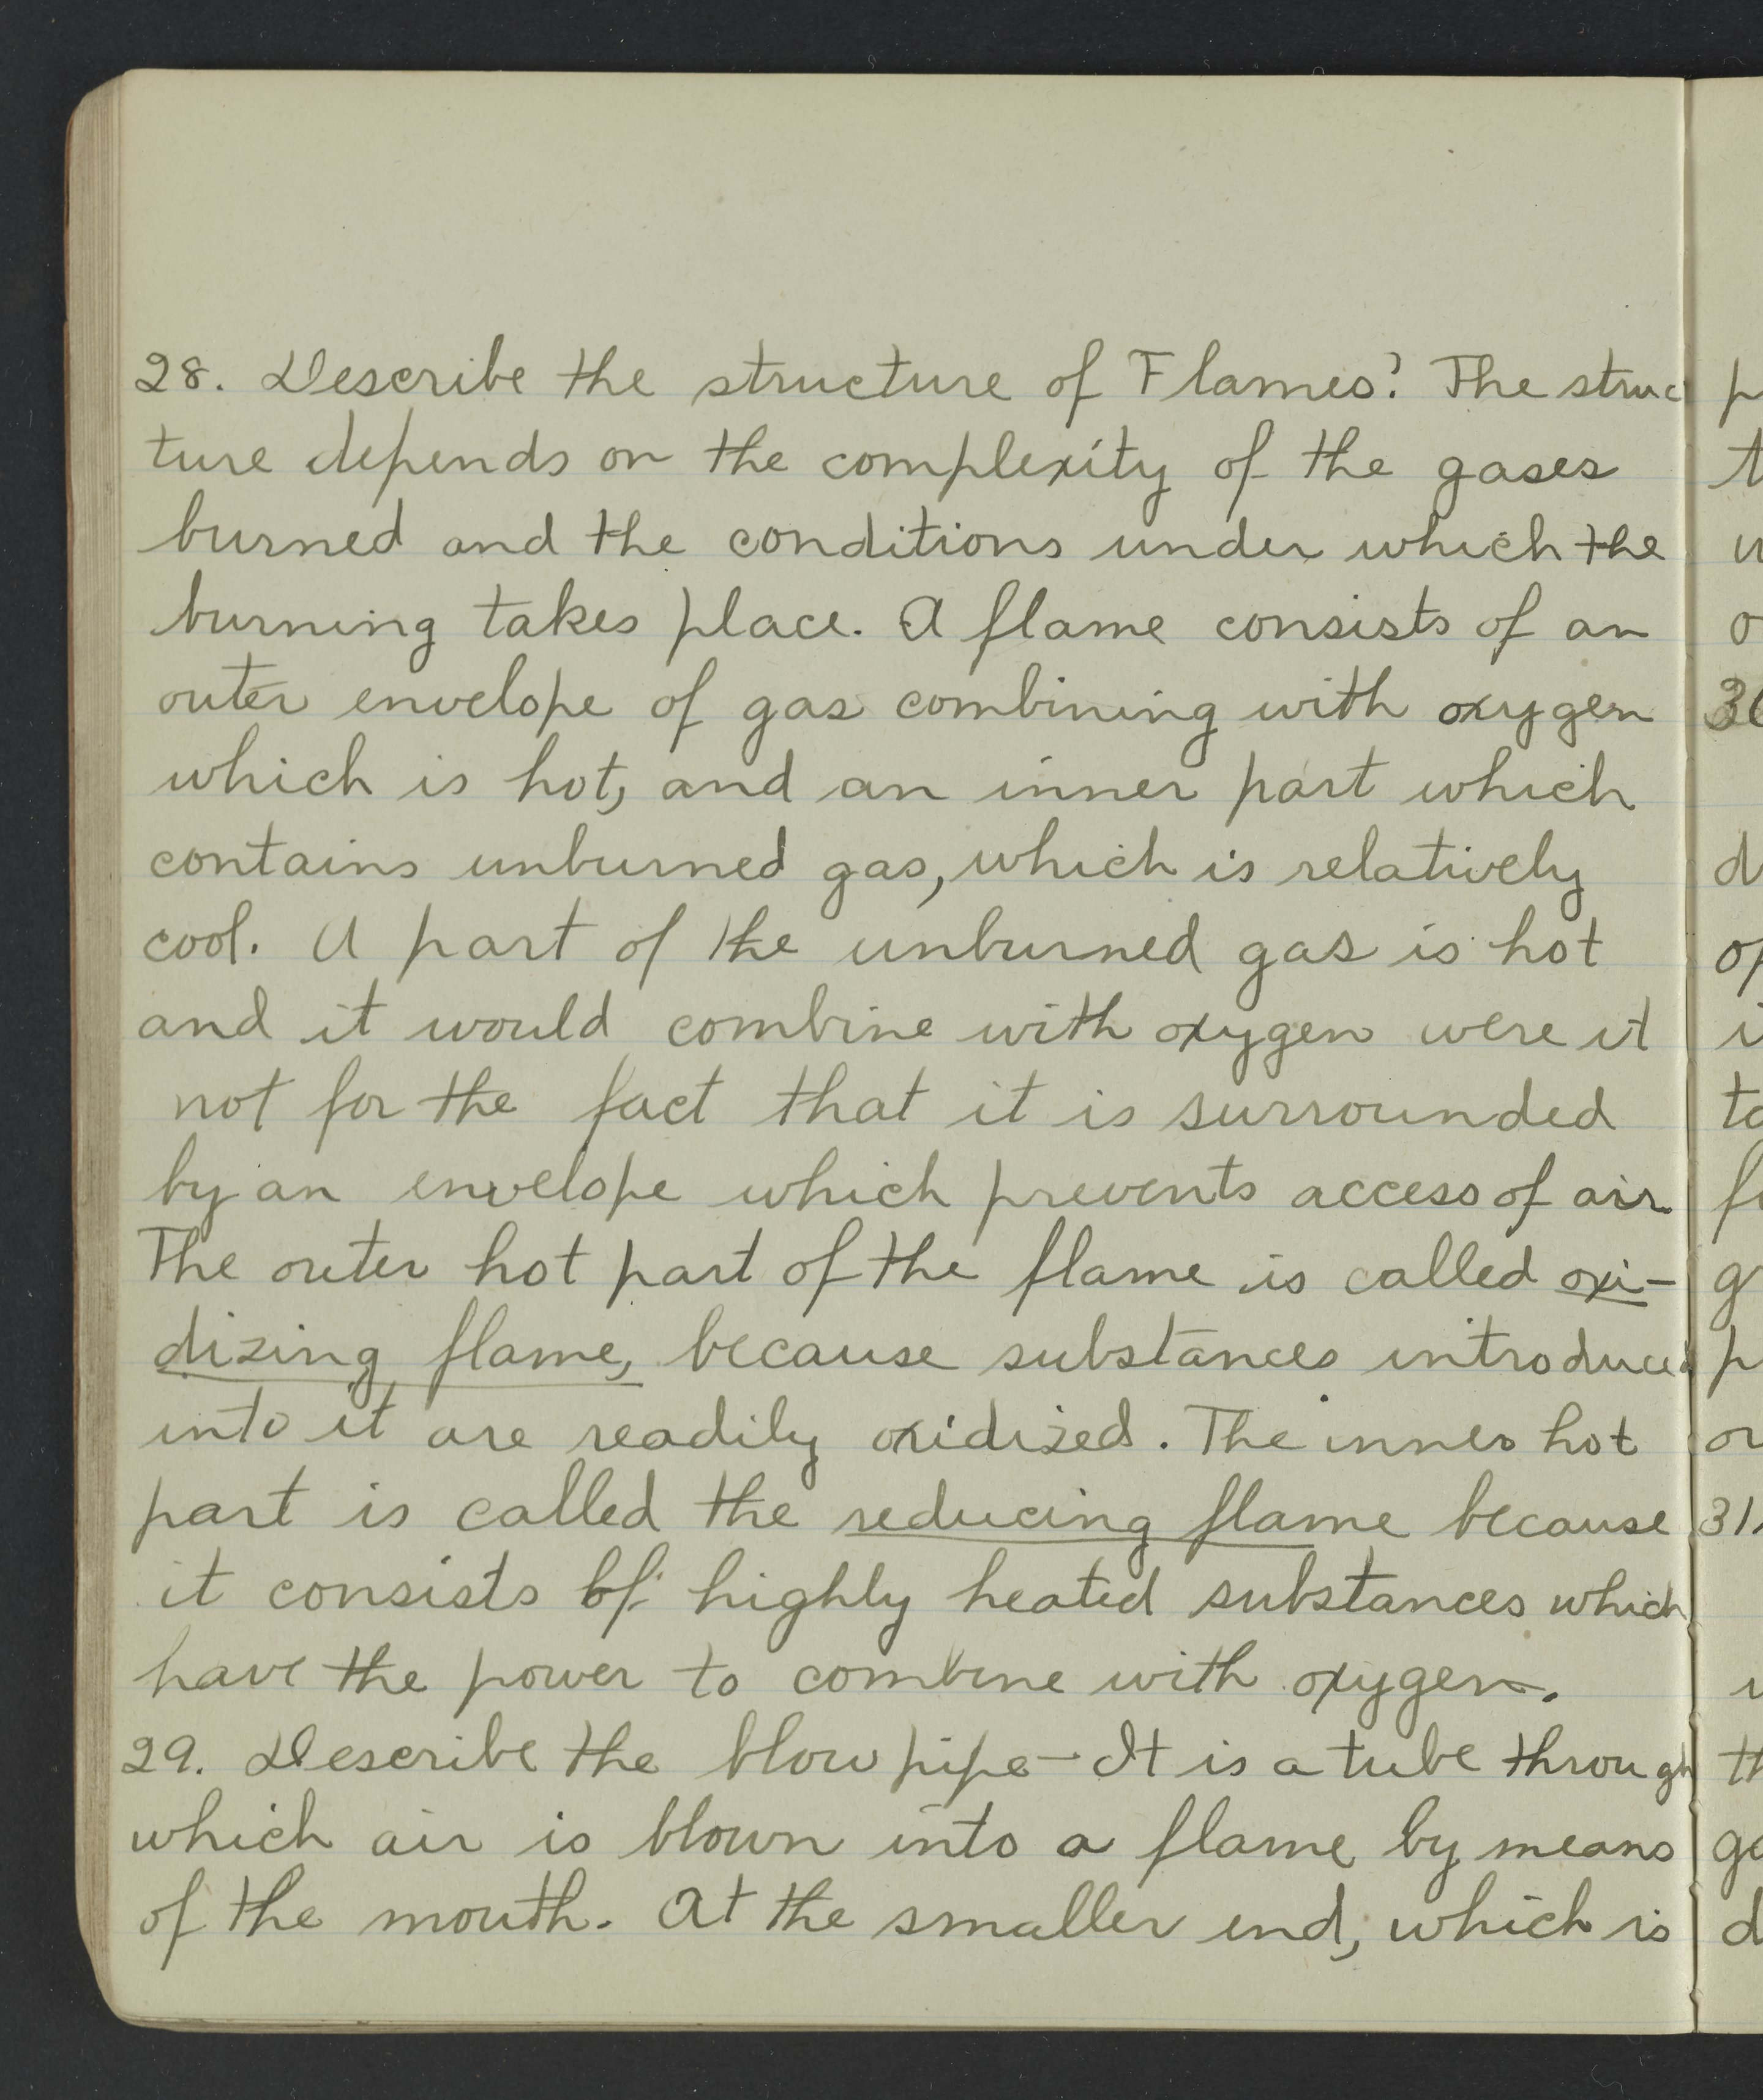 28. Describe the structure of Flames? The struc
ture depends on the complexity of the gases
burned and the conditions under which the
burning takes place. A flame consists of an
outer envelope of gas combining with oxygen
which is hot, and an inner part which
contains unburned gas, which is relatively
cool. A part of the unburned gas is hot
and it would combine with oxygen were it
not for the fact that it is surrounded
by an envelope which prevents access of air.
The outer hot part of the flame is called oxi-
dizing flame, because substances introduced
into it are readily oxidized. The inner hot
part is called the reducing flame because
it consists of highly heated substances which
have the power to combine with oxygen.
29. Describe the blow pipe - It is a tube through
which air is blown into a flame by means
of the mouth. At the smaller end, which is
31.